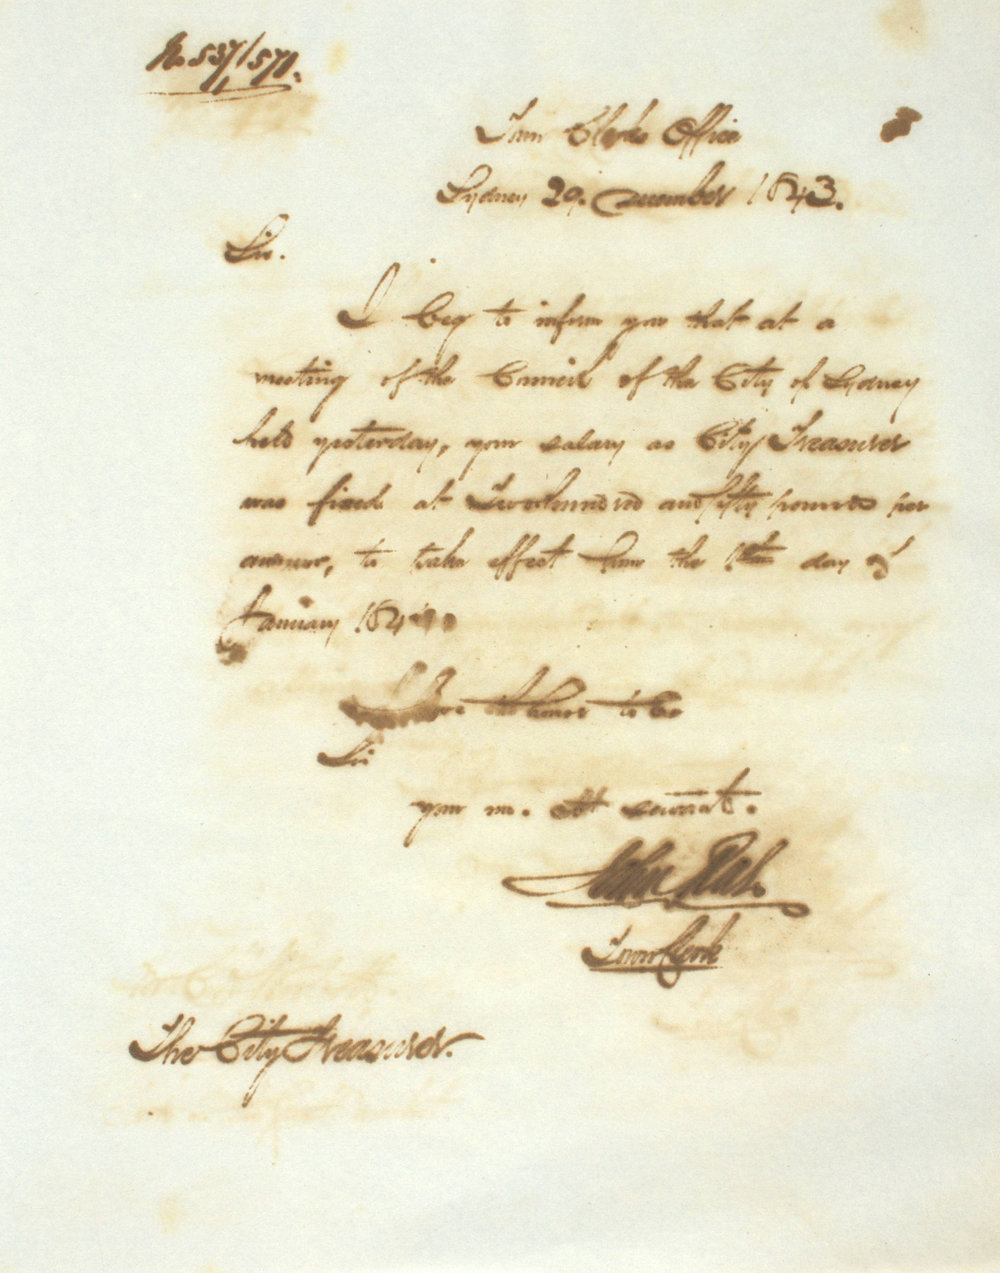 No 537/571.
Town Clerks Office
Sydney 29. December 1843.
Sir.
I beg to inform you that at a
meeting of the Council of the City of Sydney
held yesterday, your salary as City Treasurer
was fixed at Two hundred and fifty pounds per
annum, to take effect from the 1st day of
January 184
I have the honor to be
Sir
your m. obt servant.
John Rae
Town Clerk
The City Treasurer.